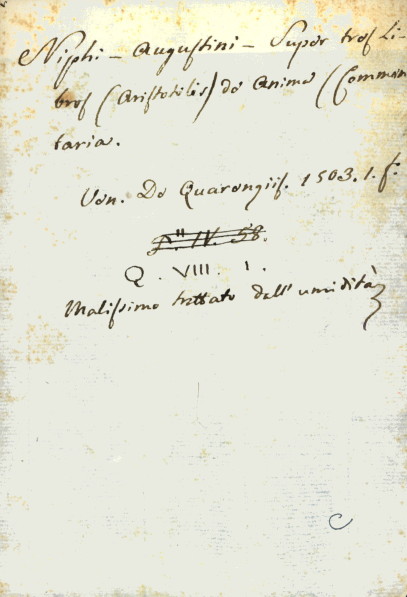 Niphi - Augustini - Super tres Li-
bros (Aristotilis) de Anima (Commen
taria.
Ven. De Quarengiis. 1503. 1. f.
IV. 58.
Q. VIII. 1.
Malissimo trattato dall' umidità
C